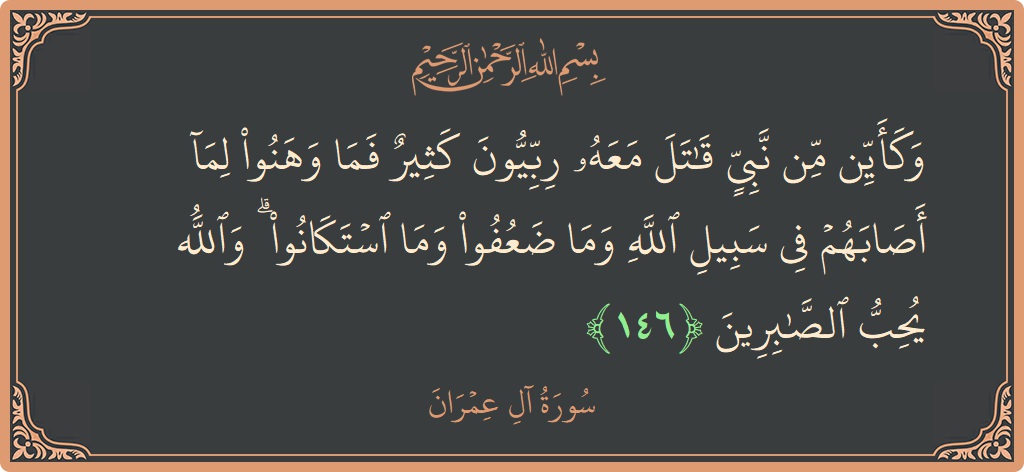 بِسْمِ اللَّهِ الرَّحْمَٰنِ الرَّحِيمِ
وَكَأَيِّن مِّن نَّبِىٍّ قَٰتَلَ مَعَهُۥ رِبِّيُّونَ كَثِيرٌ فَمَا وَهَنُوا۟ لِمَآ
أَصَابَهُمْ فِى سَبِيلِ ٱللَّهِ وَمَا ضَعُفُوا۟ وَمَا ٱسْتَكَانُوا۟ ۗ وَٱللَّهُ
يُحِبُّ ٱلصَّٰبِرِينَ ﴿١٤٦﴾
سُورَةُ آلِ عِمْرَانَ